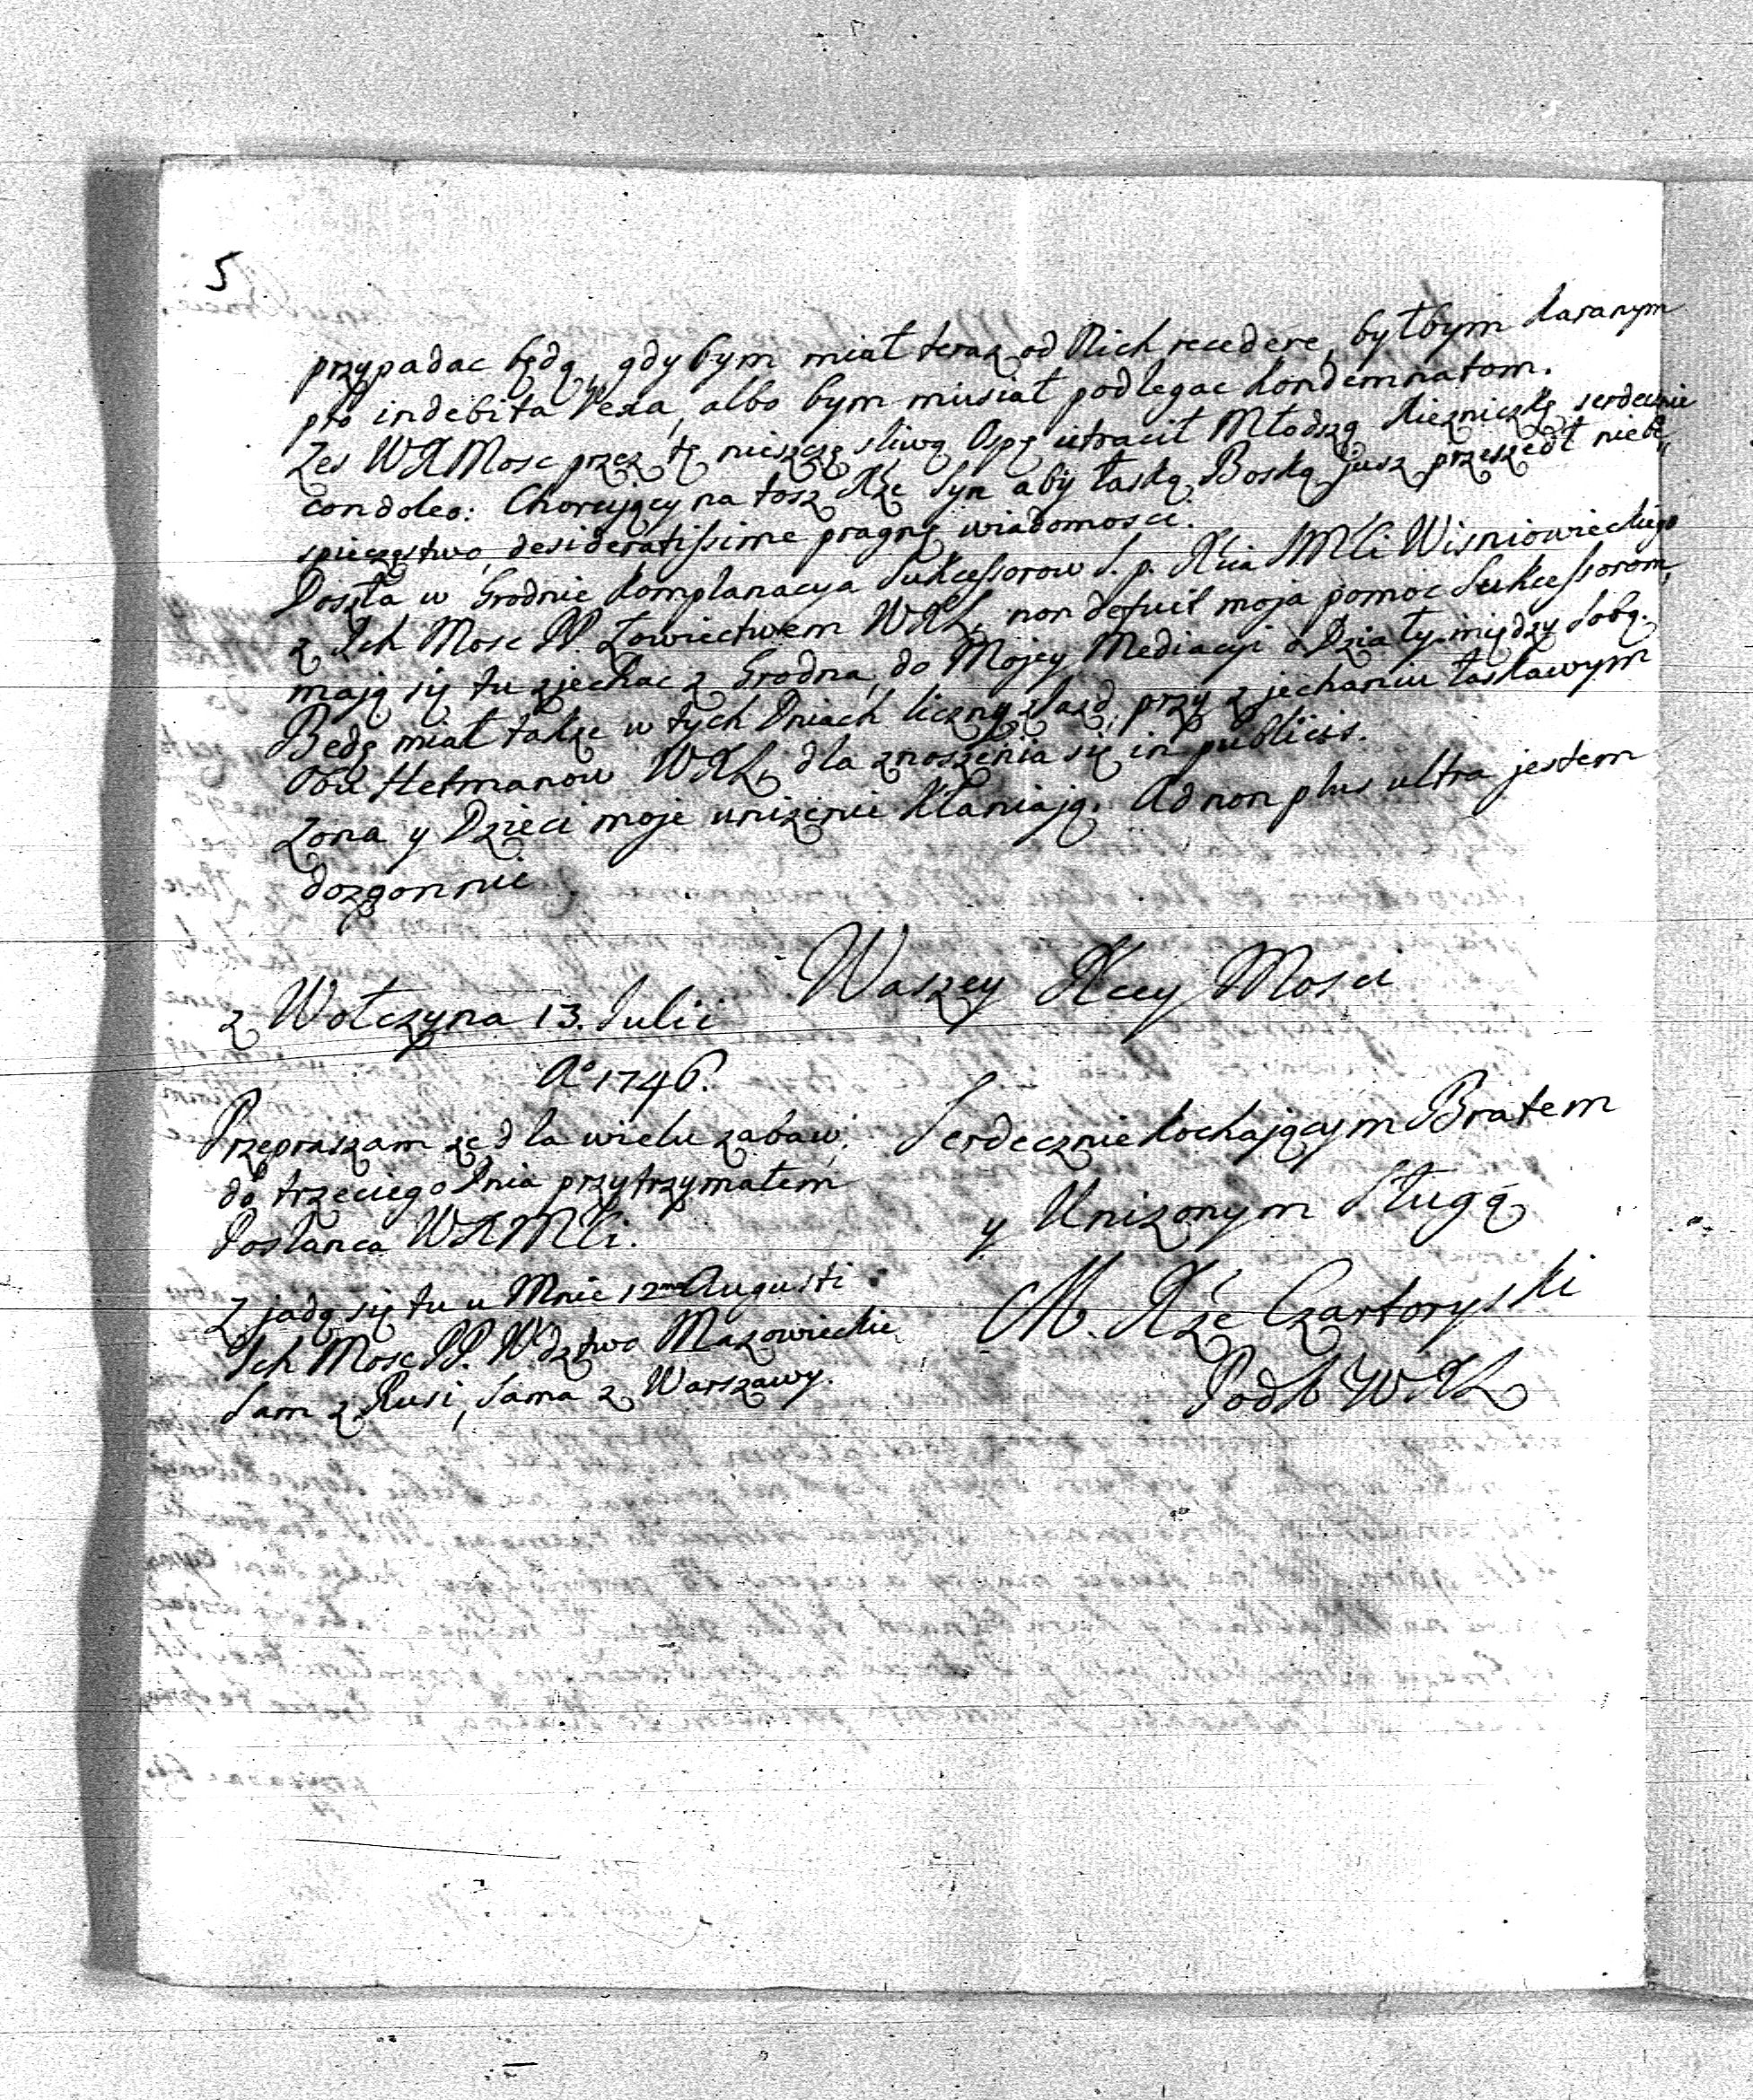 5
przypadac będą, gdy bym miał teraz od Nich recedere, byłbym karanym
pro indebita Vexa, albo bym musiał podlegac kondemnatom.
Zes WXMosc przez tę nieszczęsliwą Ospę utracił Młodszą Xiezniczkę serdecznie
condoleo: Choruiący na tosz Xże Syn aby łaską Boską jusz przeszedł niebe„
spieczęstwo, desideratissime pragnę wiadomosci.
Doszła w Grodnie komplanacya Sukcessorow S. p. Xcia JMCi Wisniowieckiego
z Ich Mosc PP. Łowiectwem WXL, non defuit moja pomoc Sukcessorom,
mają się tu zjechac z Grodna, do Mojey Mediacyi o Działy między sobą.
Będę miał także w tych Dniach liczny zjazd, przy zjechaniu łaskawym
Obu Hetmanow WXL, dla znoszenia się in publicis.
Zona y Dzieci moje unizenie kłaniają. Ad non plus ultra jestem
dozgonnie
Waszey Xcey Mosci
z Wołczyna 13. Julii
A° 1746.
Serdecznie kochającym Bratem
y Unizonym Sługą
M. Xże Czartoryski
Podk WXL
Przepraszam że dla wielu zabaw,
do trzeciego Dnia przytrzymałem
Posłanca WXMCi.
Zjadą się tu u Mnie 12ma Augusti
Ich Mosc PP. Wdztwo Mazowieckie
Sam z Rusi, Sama z Warszawy.